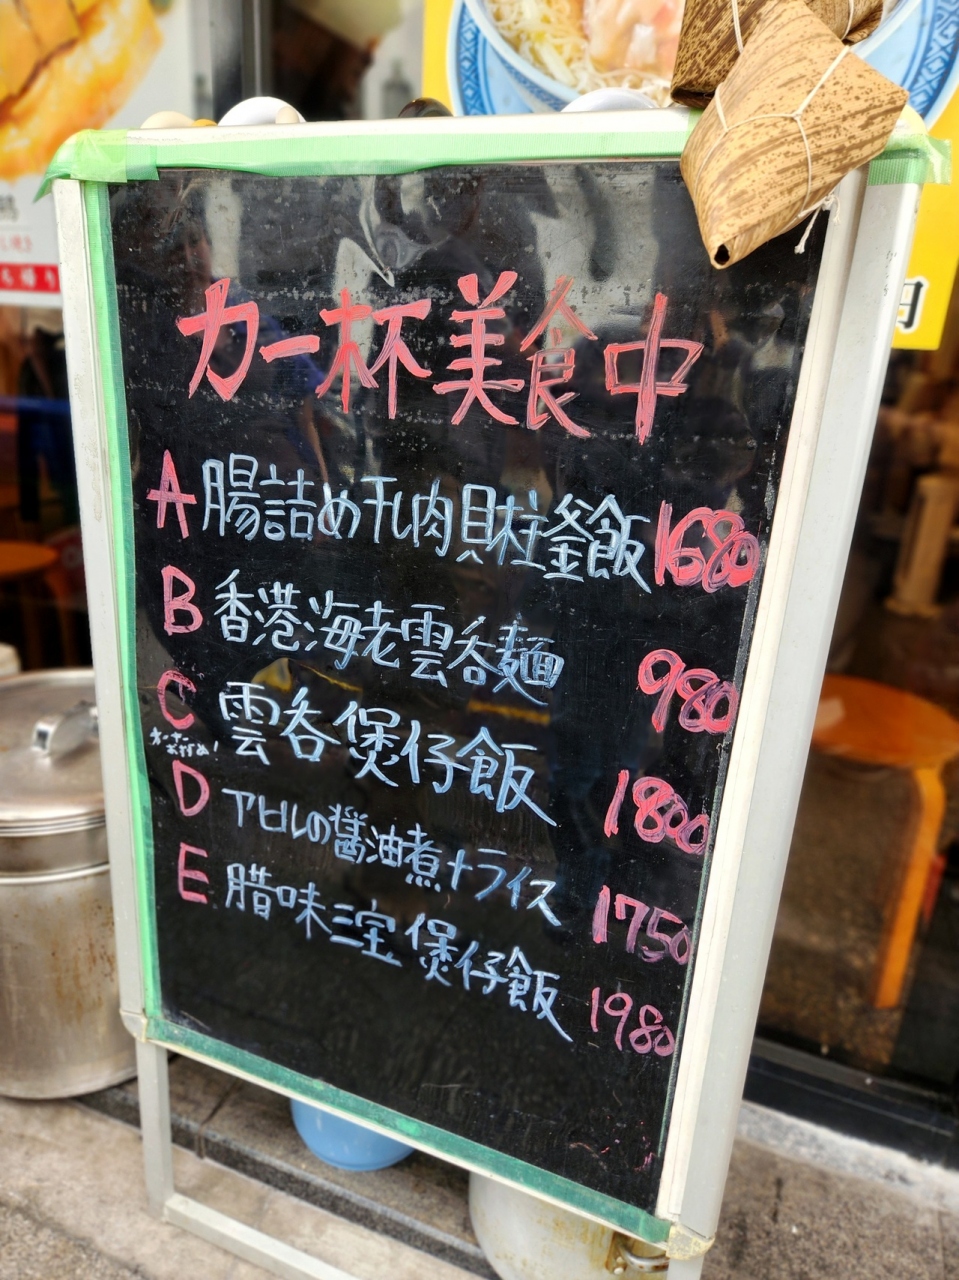 力一杯美食中
A 腸詰め干し肉貝柱釜飯 1680
B 香港海老雲呑麺 980
C 雲呑煲仔飯 1800
オーナーおすすめ!
D アヒルの醤油煮+ライス 1750
E 腊味三宝煲仔飯 1980